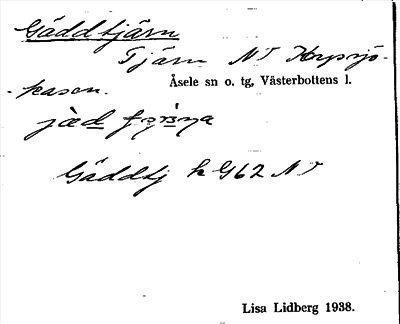 Gäddtjärn
Tjärn NV Korpsjö-
-kasen.
Åsele sn o. tg, Västerbottens l.
Gäddtj k G62 NV
Lisa Lidberg 1938.